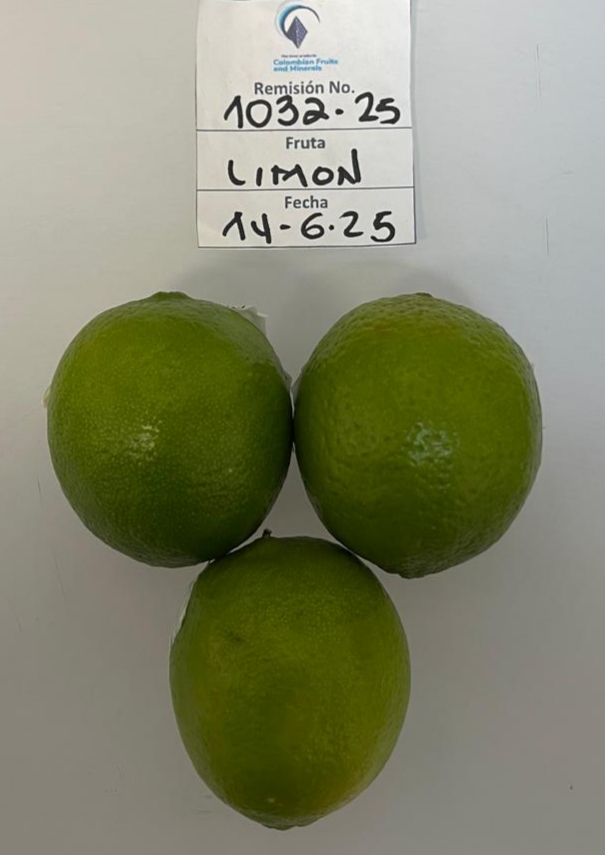 Colombian Fruits
and Minerals
Remisión No.
1032-25
Fruta
LIMON
Fecha
14-6-25